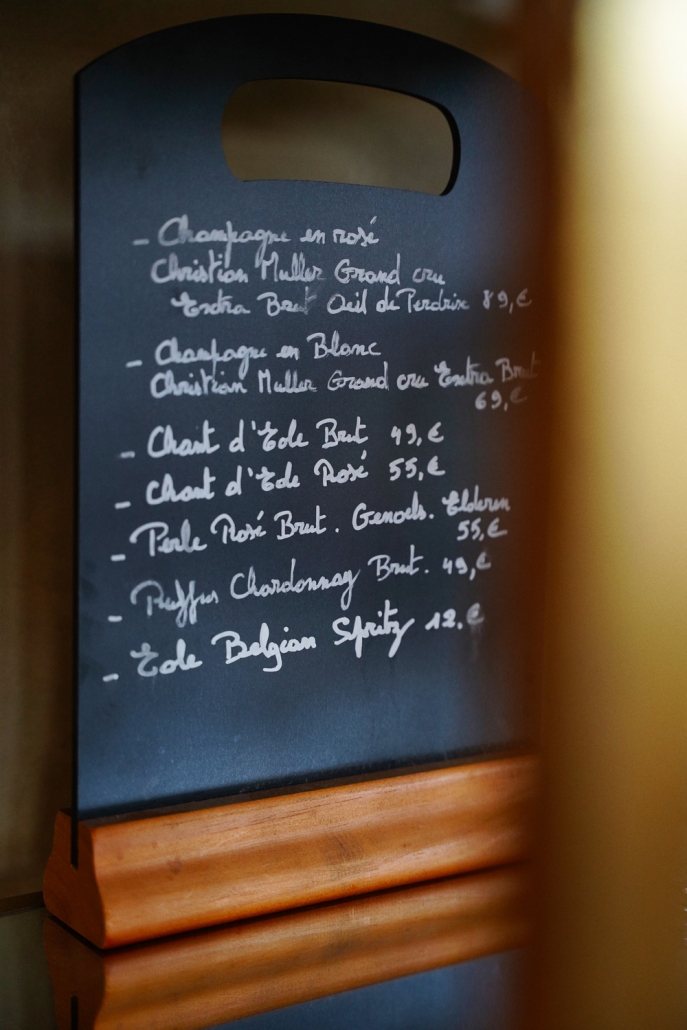 - Champagne en rosé
Christian Muller Grand cru
Extra Brut Oeil de Perdrix 89,€
- Champagne en Blanc
Christian Muller Grand cru Extra Brut
69,€
- Chant d'Eole Brut 49,€
- Chant d'Eole Rosé 55,€
- Perle Rosé Brut. Genoels. Elderen
55,€
- Ruffus Chardonnay Brut. 49,€
- Eole Belgian Spritz 12.€